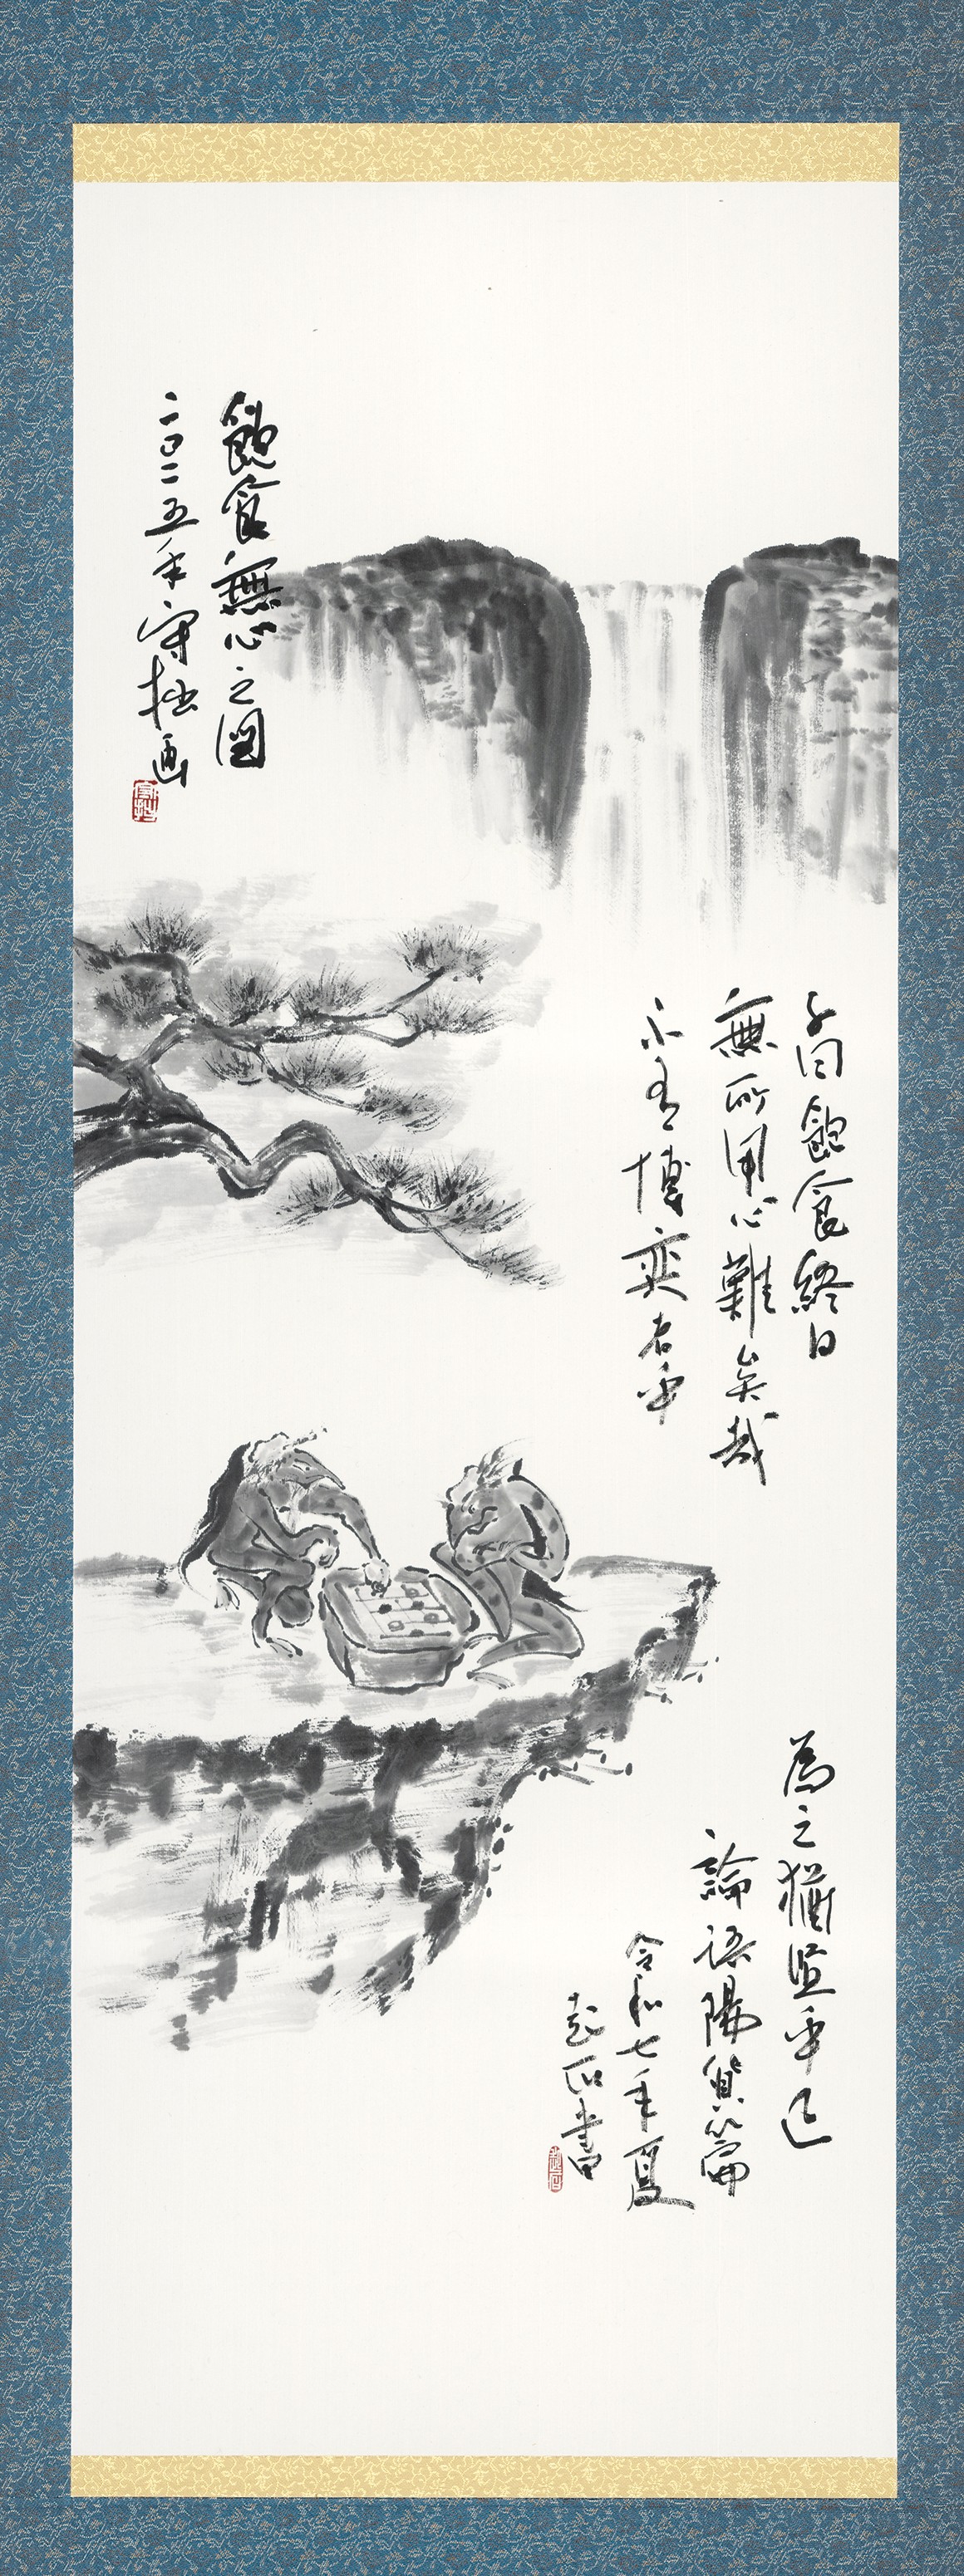 子曰飽食終日
無所用心難矣哉
不有博奕者乎
為之猶賢乎已
論語陽貨篇
令和七年夏
起石書
飽食無心之図
二〇二五年守拙画
守拙